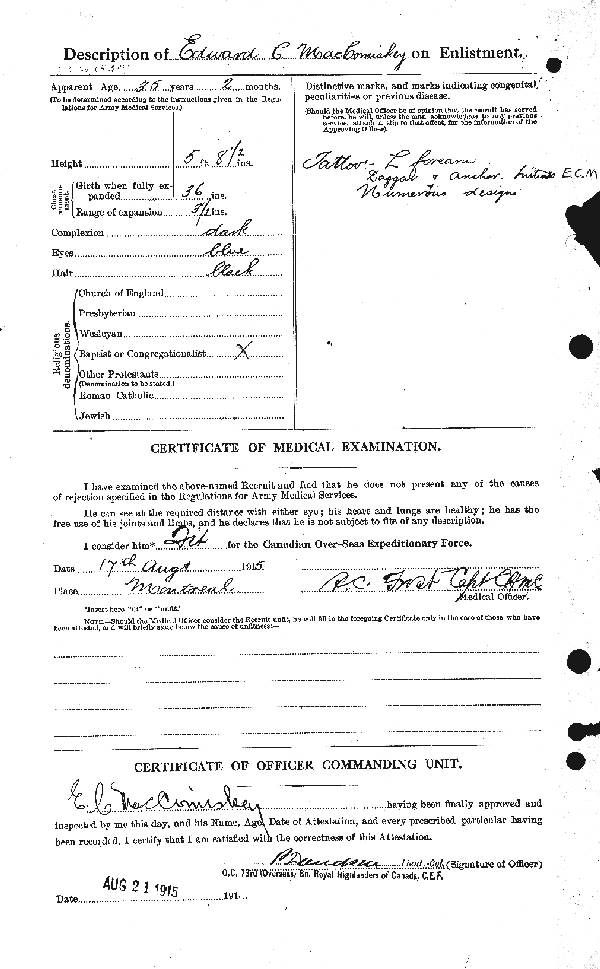 Description of Edward C MacComiskey on Enlistment.
Apparent Age 35 years 2 months.
(To be determined according to the instructions given in the Regulations for Army Medical Services.)
Height 5 ft. 8 1/2 ins.
Chest measurement
Girth when fully expanded 36 ins.
Range of expansion 3 1/2 ins.
Complexion dark
Eyes blue
Hair black
Religious denominations.
Church of England
Presbyterian
Wesleyan
Baptist or Congregationalist X
Other Protestants
(Denomination to be stated.)
Roman Catholic
Jewish
Distinctive marks, and marks indicating congenital
peculiarities or previous disease.
(Should the Medical Officer be of opinion that the recruit has served
before, he will, unless the man acknowledges to any previous
service, attach a slip to that effect, for the information of the
Approving Officer).
Tattoo - L forearm
Daggar & Anchor. Initials E.C.M
Numerous designs
CERTIFICATE OF MEDICAL EXAMINATION.
I have examined the above-named Recruit and find that he does not present any of the causes
of rejection specified in the Regulations for Army Medical Services.
He can see at the required distance with either eye; his heart and lungs are healthy; he has the
free use of his joints and limbs, and he declares that he is not subject to fits of any description.
I consider him* Fit for the Canadian Over-Seas Expeditionary Force.
Date 17th Aug 1915
Place Montreal
Capt
Medical Officer.
*Insert here "fit" or "unfit."
NOTE.—Should the Medical Officer consider the Recruit unfit, he will fill in the foregoing Certificate only in the case of those who have
been attested, and will briefly state below the cause of unfitness:—
CERTIFICATE OF OFFICER COMMANDING UNIT.
E C MacComiskey having been finally approved and
inspected by me this day, and his Name, Age, Date of Attestation, and every prescribed particular having
been recorded, I certify that I am satisfied with the correctness of this Attestation.
(Signature of Officer)
O.C. 73rd (Overseas) Bn. Royal Highlanders of Canada, C.E.F.
Date AUG 21 1915 191